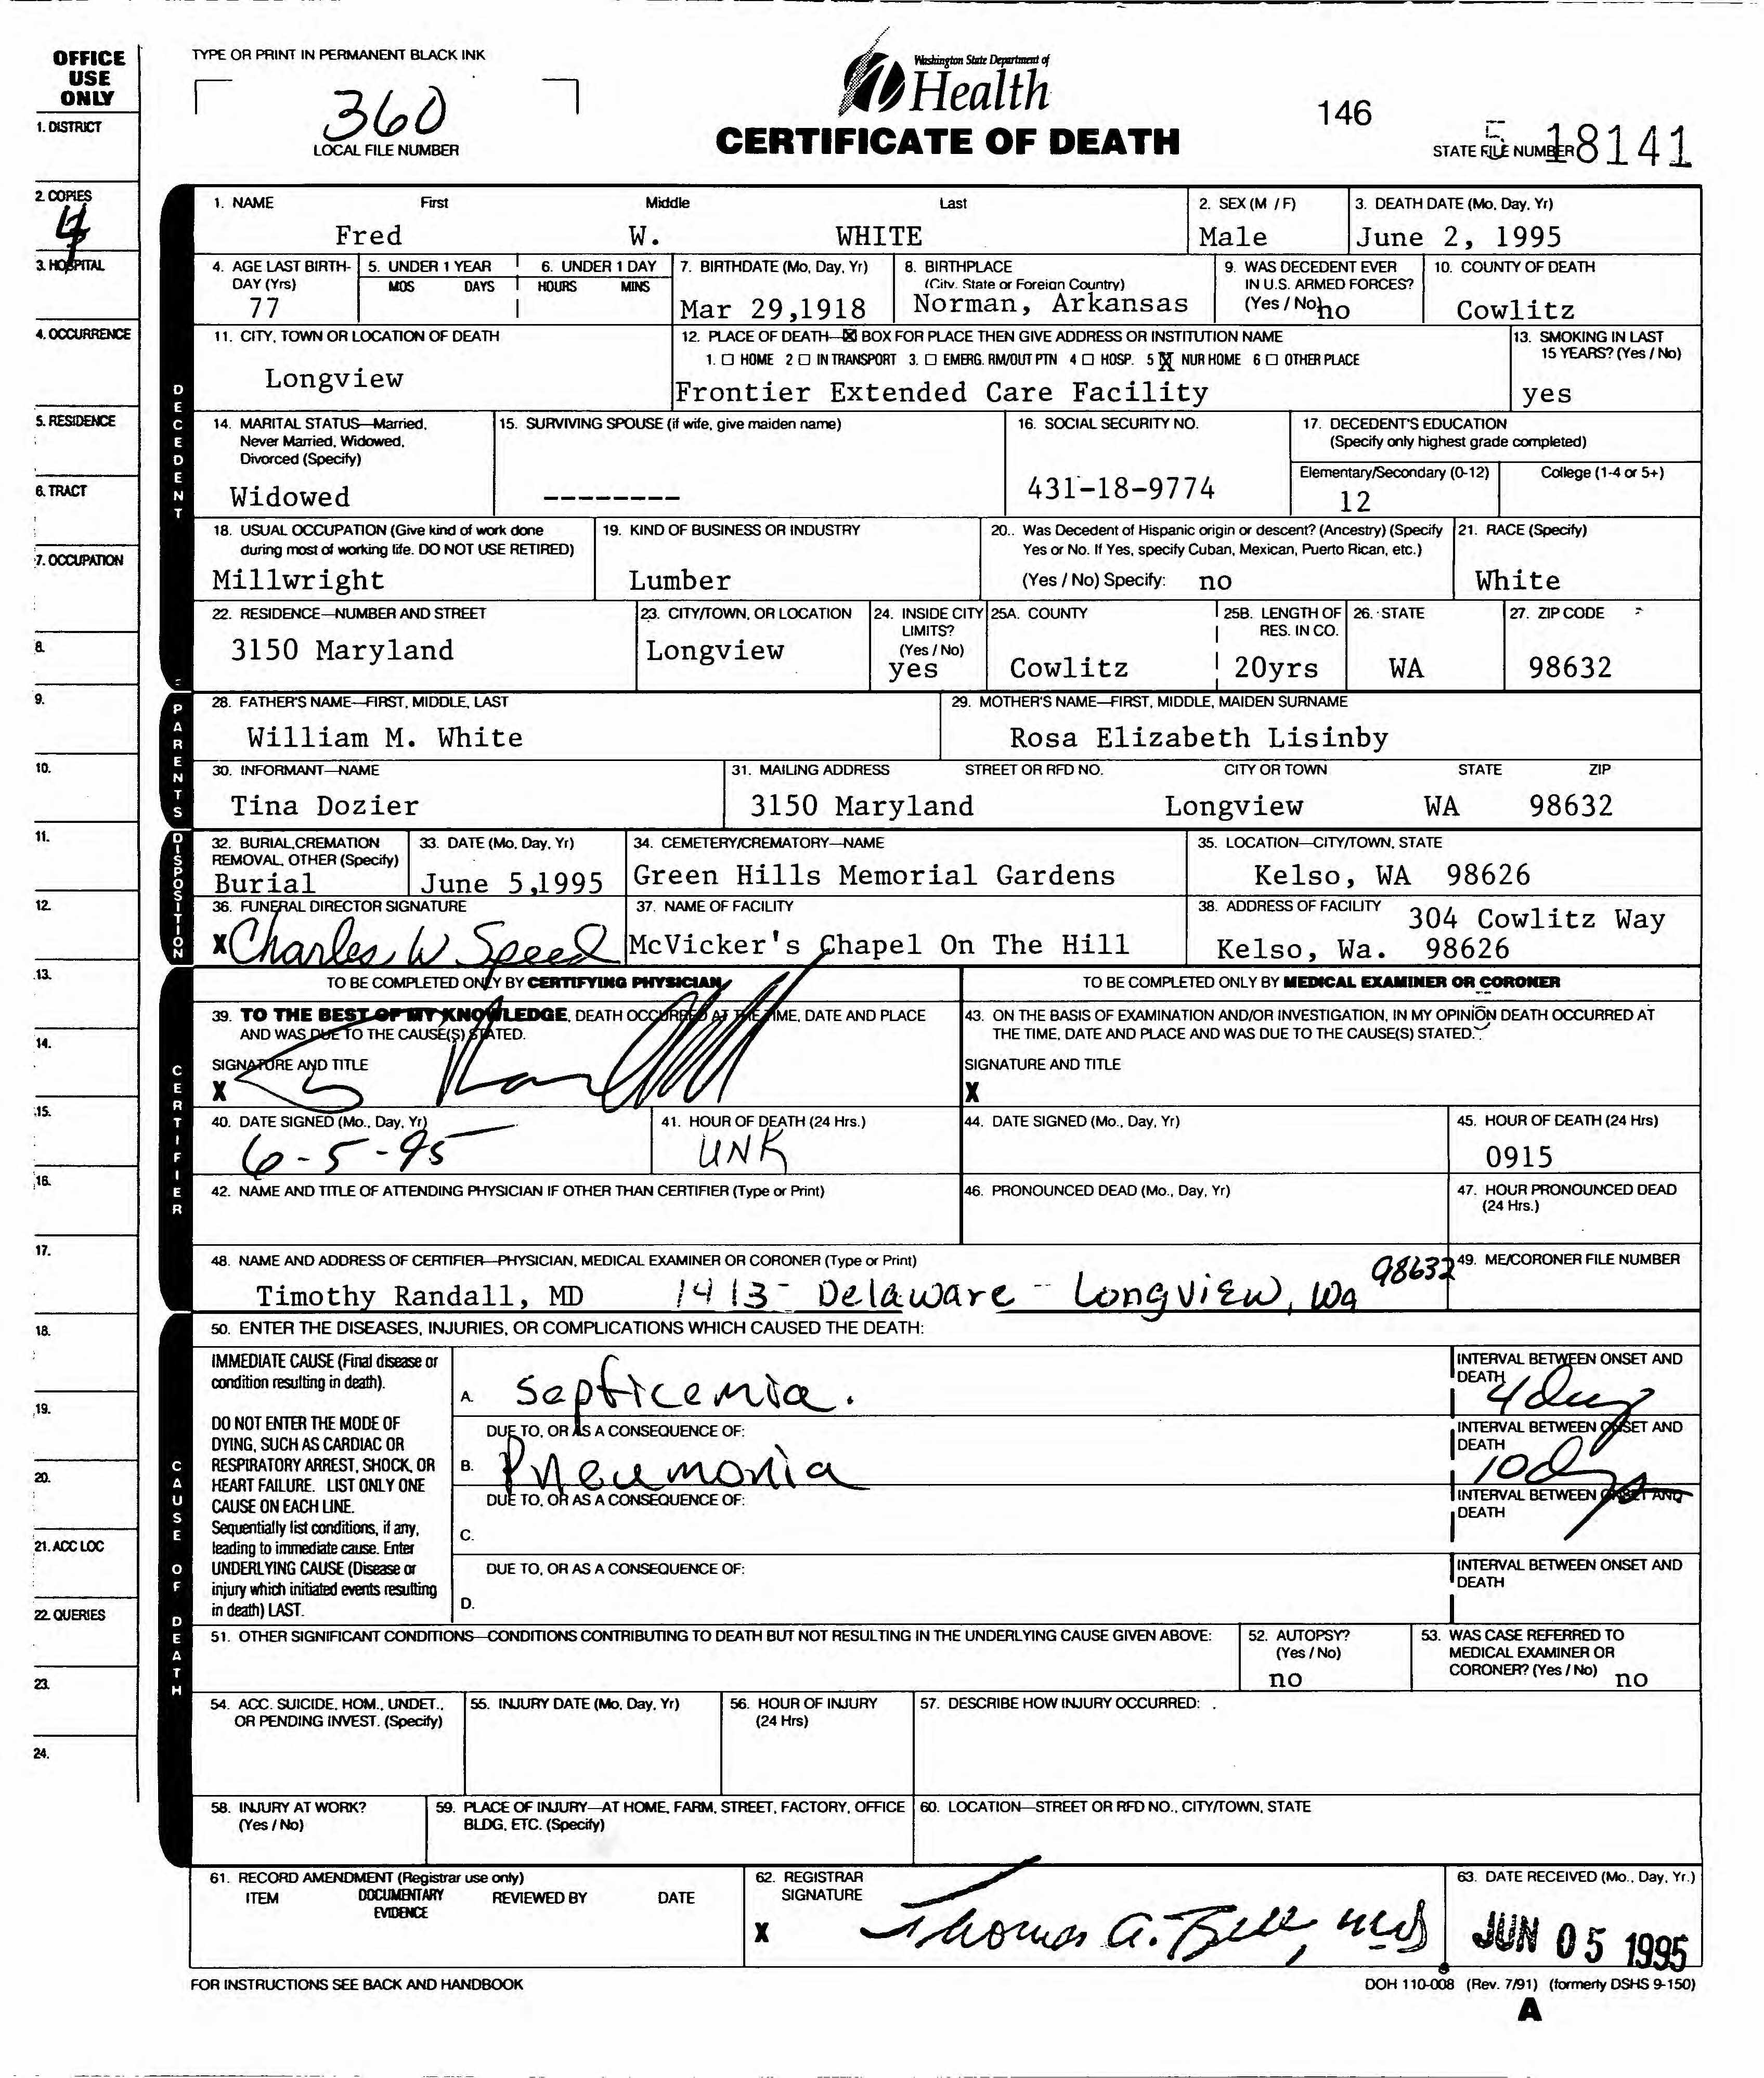 OFFICE USE ONLY
TYPE OR PRINT IN PERMANENT BLACK INK
360
LOCAL FILE NUMBER
Washington State Department of
Health
CERTIFICATE OF DEATH
146
STATE FILE NUMBER 18141
1. DISTRICT
2. COPIES
4
3. HOSPITAL
4. OCCURRENCE
5. RESIDENCE
6. TRACT
7. OCCUPATION
8.
9.
10.
11.
12.
13.
14.
15.
16.
17.
18.
19.
20.
21. ACC LOC
22. QUERIES
23.
24.
DECEDENT
1. NAME First Middle Last
Fred W. WHITE
2. SEX (M / F)
Male
3. DEATH DATE (Mo, Day, Yr)
June 2, 1995
4. AGE LAST BIRTH-
DAY (Yrs)
77
5. UNDER 1 YEAR
MOS DAYS
6. UNDER 1 DAY
HOURS MINS
7. BIRTHDATE (Mo, Day, Yr)
Mar 29,1918
8. BIRTHPLACE
(City, State or Foreign Country)
Norman, Arkansas
9. WAS DECEDENT EVER
IN U.S. ARMED FORCES?
(Yes / No) no
10. COUNTY OF DEATH
Cowlitz
11. CITY, TOWN OR LOCATION OF DEATH
Longview
12. PLACE OF DEATH—☒ BOX FOR PLACE THEN GIVE ADDRESS OR INSTITUTION NAME
1. ☐ HOME 2 ☐ IN TRANSPORT 3. ☐ EMERG. RM/OUT PTN 4 ☐ HOSP. 5 ☒ NUR HOME 6 ☐ OTHER PLACE
Frontier Extended Care Facility
13. SMOKING IN LAST
15 YEARS? (Yes / No)
yes
14. MARITAL STATUS—Married,
Never Married, Widowed,
Divorced (Specify)
Widowed
15. SURVIVING SPOUSE (if wife, give maiden name)
--------
16. SOCIAL SECURITY NO.
431-18-9774
17. DECEDENT'S EDUCATION
(Specify only highest grade completed)
Elementary/Secondary (0-12) College (1-4 or 5+)
12
18. USUAL OCCUPATION (Give kind of work done
during most of working life. DO NOT USE RETIRED)
Millwright
19. KIND OF BUSINESS OR INDUSTRY
Lumber
20.. Was Decedent of Hispanic origin or descent? (Ancestry) (Specify
Yes or No. If Yes, specify Cuban, Mexican, Puerto Rican, etc.)
(Yes / No) Specify: no
21. RACE (Specify)
White
22. RESIDENCE—NUMBER AND STREET
3150 Maryland
23. CITY/TOWN, OR LOCATION
Longview
24. INSIDE CITY
LIMITS?
(Yes / No)
yes
25A. COUNTY
Cowlitz
25B. LENGTH OF
RES. IN CO.
20yrs
26. STATE
WA
27. ZIP CODE
98632
PARENTS
28. FATHER'S NAME—FIRST, MIDDLE, LAST
William M. White
29. MOTHER'S NAME—FIRST, MIDDLE, MAIDEN SURNAME
Rosa Elizabeth Lisinby
30. INFORMANT—NAME
Tina Dozier
31. MAILING ADDRESS STREET OR RFD NO. CITY OR TOWN STATE ZIP
3150 Maryland Longview WA 98632
DISPOSITION
32. BURIAL,CREMATION
REMOVAL, OTHER (Specify)
Burial
33. DATE (Mo, Day, Yr)
June 5,1995
34. CEMETERY/CREMATORY—NAME
Green Hills Memorial Gardens
35. LOCATION—CITY/TOWN, STATE
Kelso, WA 98626
36. FUNERAL DIRECTOR SIGNATURE
X Charles W Speed
37. NAME OF FACILITY
McVicker's Chapel On The Hill
38. ADDRESS OF FACILITY 304 Cowlitz Way
Kelso, Wa. 98626
CERTIFIER
TO BE COMPLETED ONLY BY CERTIFYING PHYSICIAN
39. TO THE BEST OF MY KNOWLEDGE, DEATH OCCURRED AT THE TIME, DATE AND PLACE
AND WAS DUE TO THE CAUSE(S) STATED.
SIGNATURE AND TITLE
X
TO BE COMPLETED ONLY BY MEDICAL EXAMINER OR CORONER
43. ON THE BASIS OF EXAMINATION AND/OR INVESTIGATION, IN MY OPINION DEATH OCCURRED AT
THE TIME, DATE AND PLACE AND WAS DUE TO THE CAUSE(S) STATED.
SIGNATURE AND TITLE
X
40. DATE SIGNED (Mo., Day, Yr)
6-5-95
41. HOUR OF DEATH (24 Hrs.)
UNK
44. DATE SIGNED (Mo., Day, Yr)
45. HOUR OF DEATH (24 Hrs)
0915
42. NAME AND TITLE OF ATTENDING PHYSICIAN IF OTHER THAN CERTIFIER (Type or Print)
46. PRONOUNCED DEAD (Mo., Day, Yr)
47. HOUR PRONOUNCED DEAD
(24 Hrs.)
48. NAME AND ADDRESS OF CERTIFIER—PHYSICIAN, MEDICAL EXAMINER OR CORONER (Type or Print)
Timothy Randall, MD 1413 - Delaware - Longview, Wa 98632
49. ME/CORONER FILE NUMBER
CAUSE OF DEATH
50. ENTER THE DISEASES, INJURIES, OR COMPLICATIONS WHICH CAUSED THE DEATH:
IMMEDIATE CAUSE (Final disease or
condition resulting in death).
DO NOT ENTER THE MODE OF
DYING, SUCH AS CARDIAC OR
RESPIRATORY ARREST, SHOCK, OR
HEART FAILURE. LIST ONLY ONE
CAUSE ON EACH LINE.
Sequentially list conditions, if any,
leading to immediate cause. Enter
UNDERLYING CAUSE (Disease or
injury which initiated events resulting
in death) LAST.
A. Septicemia.
INTERVAL BETWEEN ONSET AND
DEATH
4 day
DUE TO, OR AS A CONSEQUENCE OF:
B. Pneumonia
INTERVAL BETWEEN ONSET AND
DEATH
10 days
DUE TO, OR AS A CONSEQUENCE OF:
C.
INTERVAL BETWEEN ONSET AND
DEATH
DUE TO, OR AS A CONSEQUENCE OF:
D.
INTERVAL BETWEEN ONSET AND
DEATH
51. OTHER SIGNIFICANT CONDITIONS—CONDITIONS CONTRIBUTING TO DEATH BUT NOT RESULTING IN THE UNDERLYING CAUSE GIVEN ABOVE:
52. AUTOPSY?
(Yes / No)
no
53. WAS CASE REFERRED TO
MEDICAL EXAMINER OR
CORONER? (Yes / No) no
54. ACC. SUICIDE, HOM., UNDET.,
OR PENDING INVEST. (Specify)
55. INJURY DATE (Mo, Day, Yr)
56. HOUR OF INJURY
(24 Hrs)
57. DESCRIBE HOW INJURY OCCURRED:
58. INJURY AT WORK?
(Yes / No)
59. PLACE OF INJURY—AT HOME, FARM, STREET, FACTORY, OFFICE
BLDG, ETC. (Specify)
60. LOCATION—STREET OR RFD NO., CITY/TOWN, STATE
61. RECORD AMENDMENT (Registrar use only)
ITEM DOCUMENTARY EVIDENCE REVIEWED BY DATE
62. REGISTRAR
SIGNATURE
X Thomas A. Bell, MD
63. DATE RECEIVED (Mo., Day, Yr.)
JUN 05 1995
FOR INSTRUCTIONS SEE BACK AND HANDBOOK
DOH 110-008 (Rev. 7/91) (formerly DSHS 9-150)
A